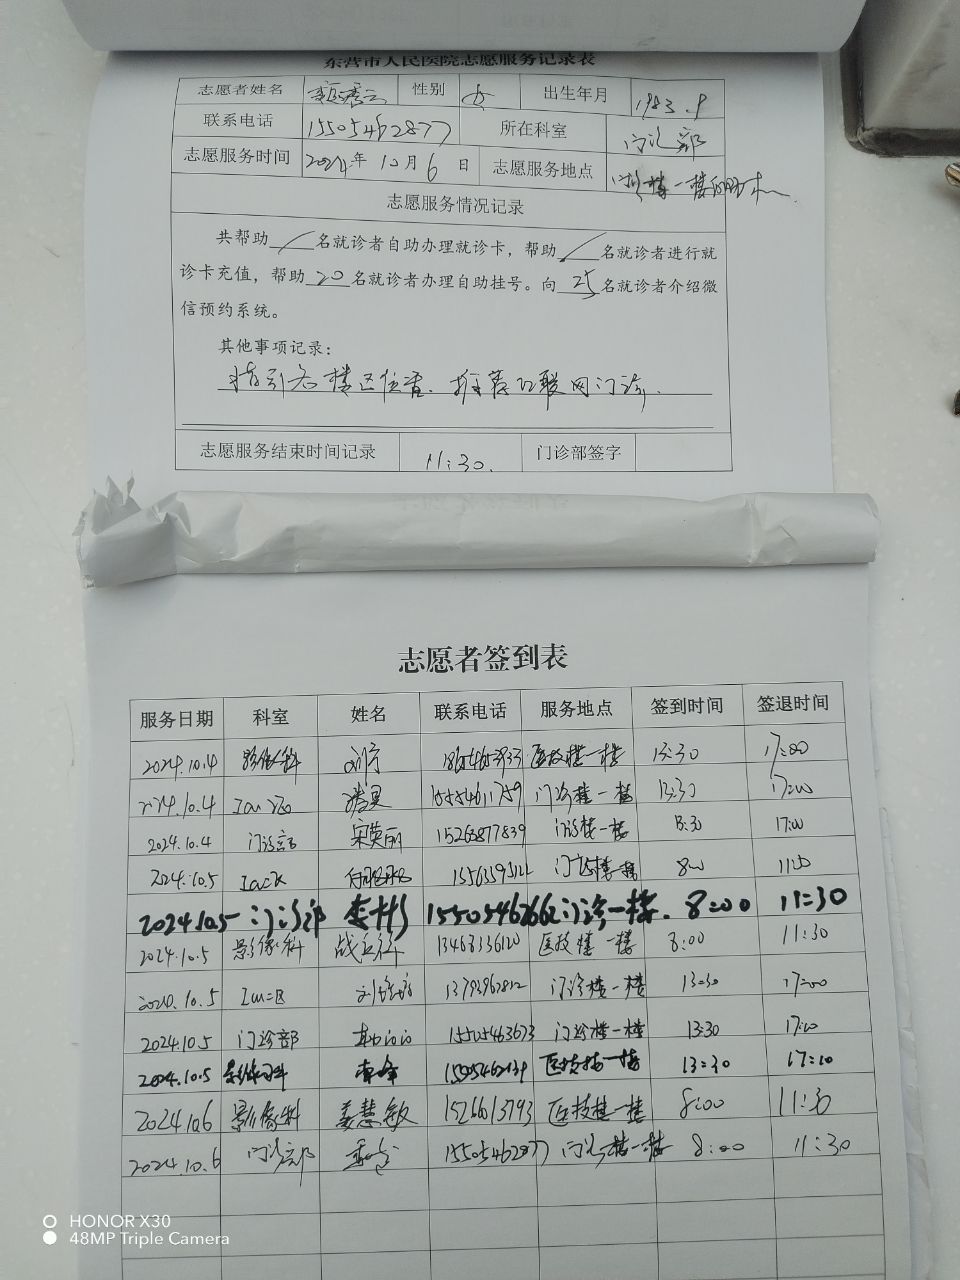 东营市人民医院志愿服务记录表
志愿者姓名 性别 女 出生年月 1983.9
联系电话 15505462877 所在科室 门诊部
志愿服务时间 2024年10月6日 志愿服务地点 门诊楼一楼
志愿服务情况记录
共帮助 / 名就诊者自助办理就诊卡，帮助 / 名就诊者进行就
诊卡充值，帮助 20 名就诊者办理自助挂号。向 25 名就诊者介绍微
信预约系统。
其他事项记录：
指引各楼区位置、推荐互联网门诊.
志愿服务结束时间记录 11:30. 门诊部签字
志愿者签到表
服务日期 科室 姓名 联系电话 服务地点 签到时间 签退时间
2024.10.4 影像科 医技楼一楼 13:30 17:00
2024.10.4 门诊楼一楼 13:30 17:00
2024.10.4 门诊部 宋英丽 15263877839 门诊楼一楼 13:30 17:00
2024.10.5 门诊楼一楼 8:00
2024.10.5 门诊部 门诊一楼. 8:00 11:30
2024.10.5 影像科 13463336120 医技楼一楼 8:00 11:30
2024.10.5 门诊楼一楼 13:30 17:00
2024.10.5 门诊部 15505463673 门诊楼一楼 13:30 17:00
2024.10.5 影像科 医技楼一楼 13:30 17:10
2024.10.6 影像科 姜慧敏 15266613793 医技楼一楼 8:00 11:30
2024.10.6 门诊部 15505462877 门诊楼一楼 8:00 11:30
HONOR X30
48MP Triple Camera